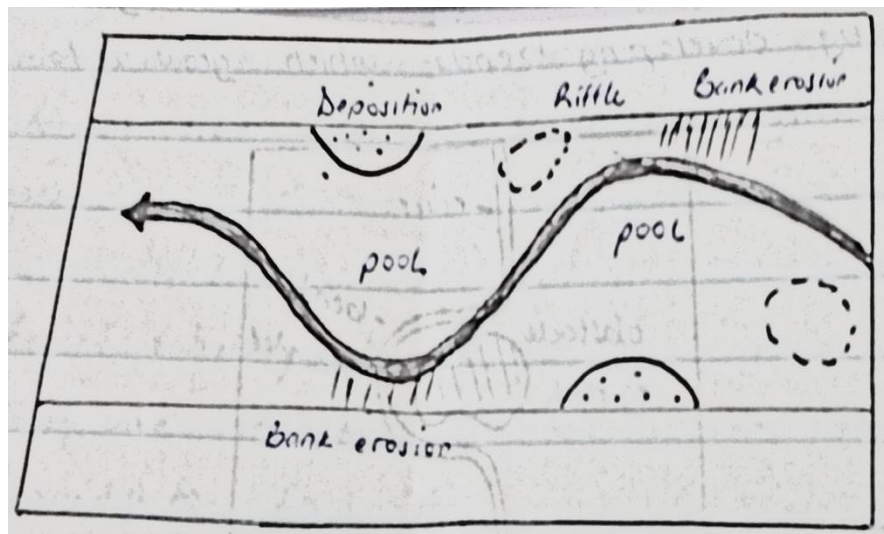 Deposition
Riffle
Bank erosion
pool
pool
bank erosion